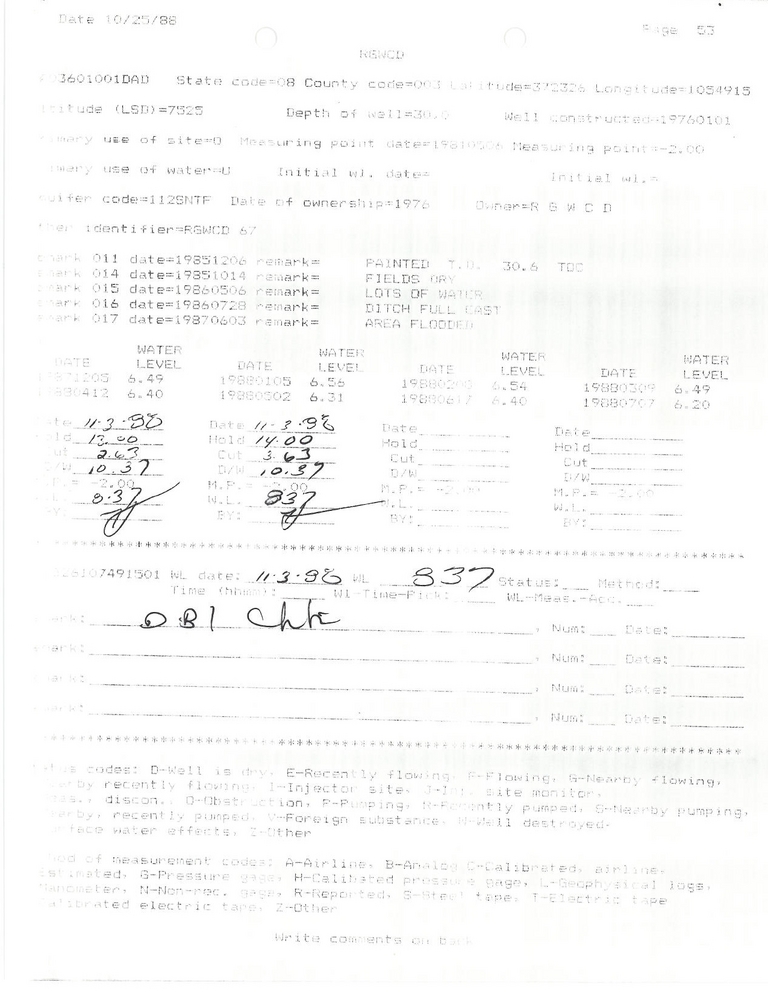 Date 10/25/88
Page 53
RGWCD
03601001DAD State code=08 County code=003 Latitude=372326 Longitude=1054915
titude (LSD)=7525 Depth of well=30.0 Well constructed=19760101
imary use of site=O Measuring point date=19810506 Measuring point=-2.00
imary use of water=U Initial wl. date= Initial wl.=
uifer code=112SNTF Date of ownership=1976 Owner=R G W C D
her identifier=RGWCD 67
mark 011 date=19851206 remark= PAINTED T.D. 30.6 TOC
mark 014 date=19851014 remark= FIELDS DRY
mark 015 date=19860506 remark= LOTS OF WATER
mark 016 date=19860728 remark= DITCH FULL EAST
mark 017 date=19870603 remark= AREA FLOODED
WATER WATER WATER WATER
DATE LEVEL DATE LEVEL DATE LEVEL DATE LEVEL
9871205 6.49 19880105 6.56 6.54 19880309 6.49
9880412 6.40 19880502 6.31 19880617 6.40 19880707 6.20
ate 11-3-88 Date 11-3-88 Date Date
old 13.00 Hold 14.00 Hold Hold
Cut 2.63 Cut 3.63 Cut Cut
D/W 10.37 D/W 10.37 D/W D/W
.P.= -2.00 M.P.= -2.00 M.P.= -2.00 M.P.= -2.00
.L. 8.37 W.L. 837 W.L. W.L.
BY: BY: BY: BY:
********************************************************************************
326107491501 WL date: 11-3-88 WL 837 Status: Method:
Time (hhmm): Wl-Time-Pick: WL-Meas.-Acc.
mark: OB1 Chk , Num: Date:
mark: , Num: Date:
mark: , Num: Date:
mark: , Num: Date:
********************************************************************************
atus codes: D-Well is dry, E-Recently flowing, F-Flowing, G-Nearby flowing,
earby recently flowing, I-Injector site, J-Inj. site monitor,
eas., discon., O-Obstruction, P-Pumping, R-Recently pumped, S-Nearby pumping,
earby, recently pumped, V-Foreign substance, W-Well destroyed.
urface water effects, Z-Other
hod of measurement codes: A-Airline, B-Analog C-Calibrated, airline,
Estimated, G-Pressure gage, H-Calibated pressure gage, L-Geophysical logs,
Manometer, N-Non-rec. gage, R-Reported, S-Steel tape, T-Electric tape
Calibrated electric tape, Z-Other
Write comments on back